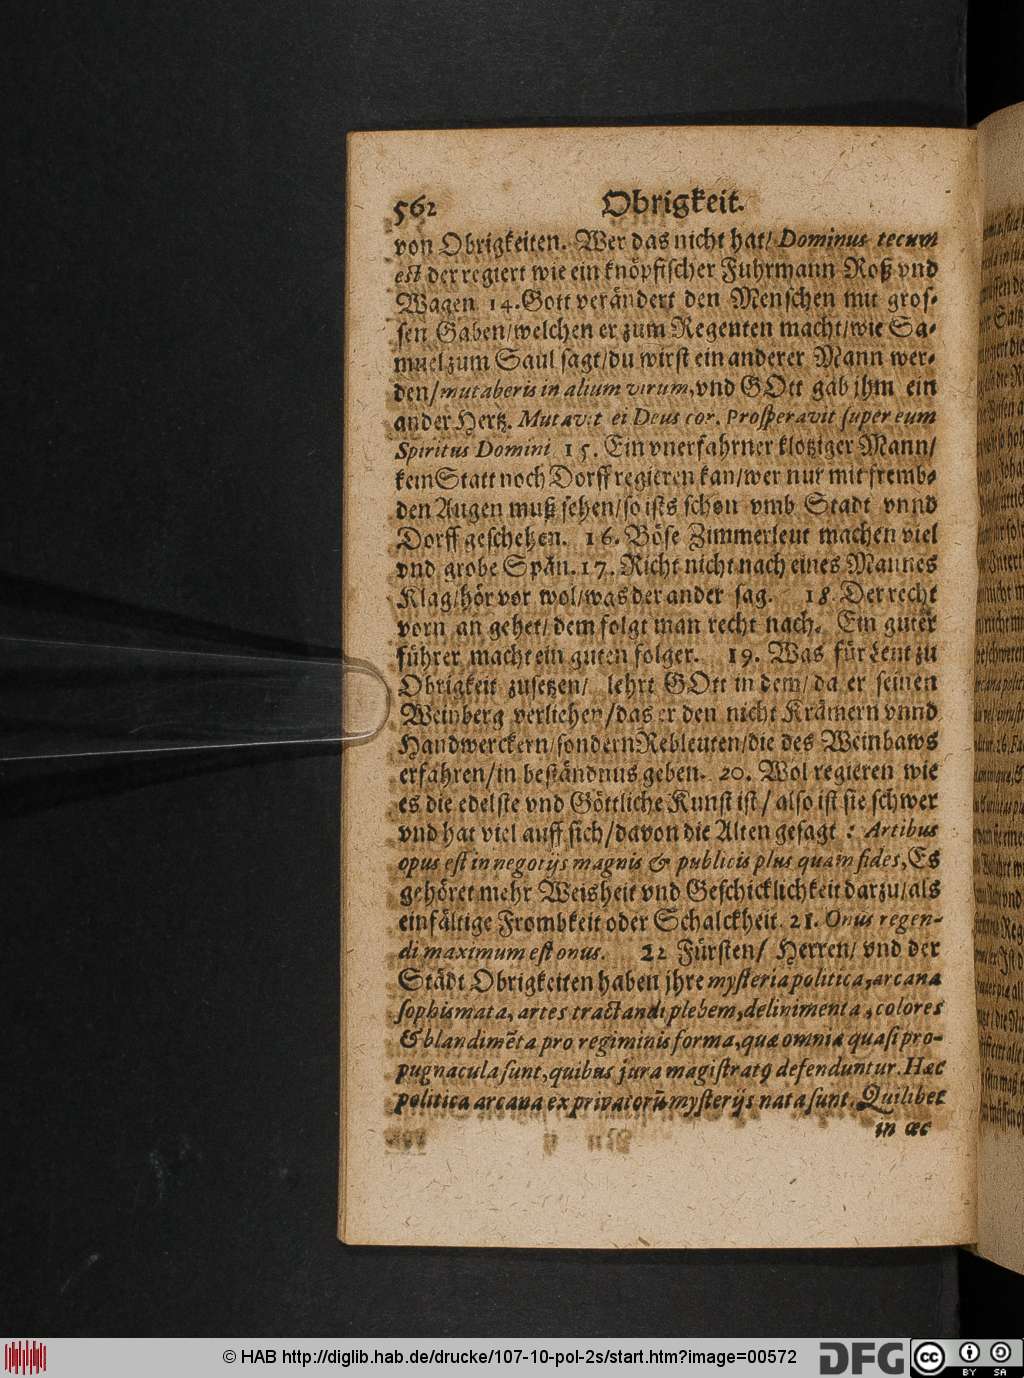 562 Obrigkeit.
von Obrigkeiten. Wer das nicht hat/ Dominus tecum
est der regiert wie ein knöpfischer Fuhrmann Roß vnd
Wagen 14. Gott verändert den Menschen mit gros-
sen Gaben/welchen er zum Regenten macht/wie Sa-
muel zum Saul sagt/du wirst ein anderer Mann wer-
den/mutaberis in alium virum, vnd GOtt gab jhm ein
ander Hertz. Mutavit ei Deus cor. Prosperavit super eum
Spiritus Domini 15. Ein vnerfahrner klotziger Mann/
kein Statt noch Dorff regieren kan/wer nur mit fremb-
den Augen muß sehen/so ists schon vmb Stadt vnnd
Dorff geschehen. 16. Böse Zimmerleut machen viel
vnd grobe Spän. 17. Richt nicht nach eines Mannes
Klag/hör vor wol/was der ander sag. 18 Der recht
vorn an gehet/ dem folgt man recht nach. Ein guter
führer macht ein guten folger. 19. Was für Leut zu
Obrigkeit zusetzen/ lehrt GOtt in dem/ da er seinen
Weinberg verliehen/das er den nicht Krämern vnnd
Handwerckern/sondern Rebleuten/die des Weinbaws
erfahren/in beständnus geben. 20. Wol regieren wie
es die edelste vnd Göttliche Kunst ist/ also ist sie schwer
vnd hat viel auff sich/davon die Alten gesagt : Artibus
opus est in negotijs magnis & publicis plus quam fides, Es
gehöret mehr Weisheit vnd Geschicklichkeit darzu/als
einfältige Frombkeit oder Schalckheit. 21. Onus regen-
di maximum est onus. 22 Fürsten/ Herren/ vnd der
Städt Obrigkeiten haben jhre mysteria politica, arcana
sophismata, artes tractandi plebem, delinimenta, colores
& blandimẽta pro regiminis forma, quæ omnia quasi pro-
pugnacula sunt, quibus jura magistratq; defenduntur. Hæc
politica arcana ex privatorũ mysterijs nata sunt. Quilibet
in æc
© HAB http://diglib.hab.de/drucke/107-10-pol-2s/start.htm?image=00572
DFG
cc BY SA